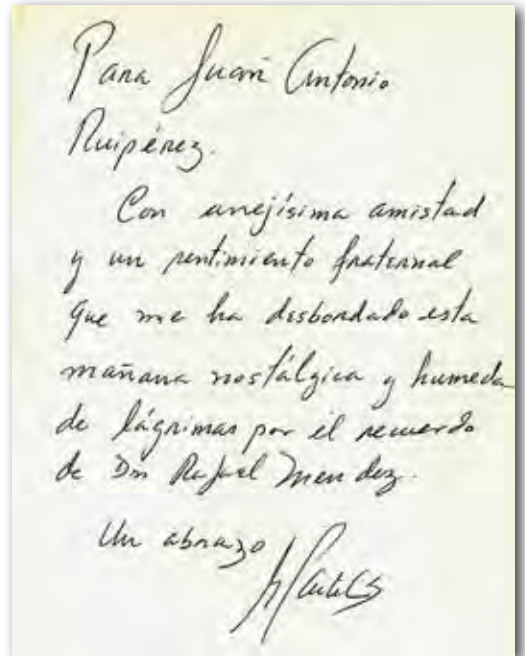 Para Juan Antonio
Ruipérez.
Con anejísima amistad
y un sentimiento fraternal
que me ha desbordado esta
mañana nostálgica y humeda
de lágrimas por el recuerdo
de Don Rafael Mendez.
Un abrazo